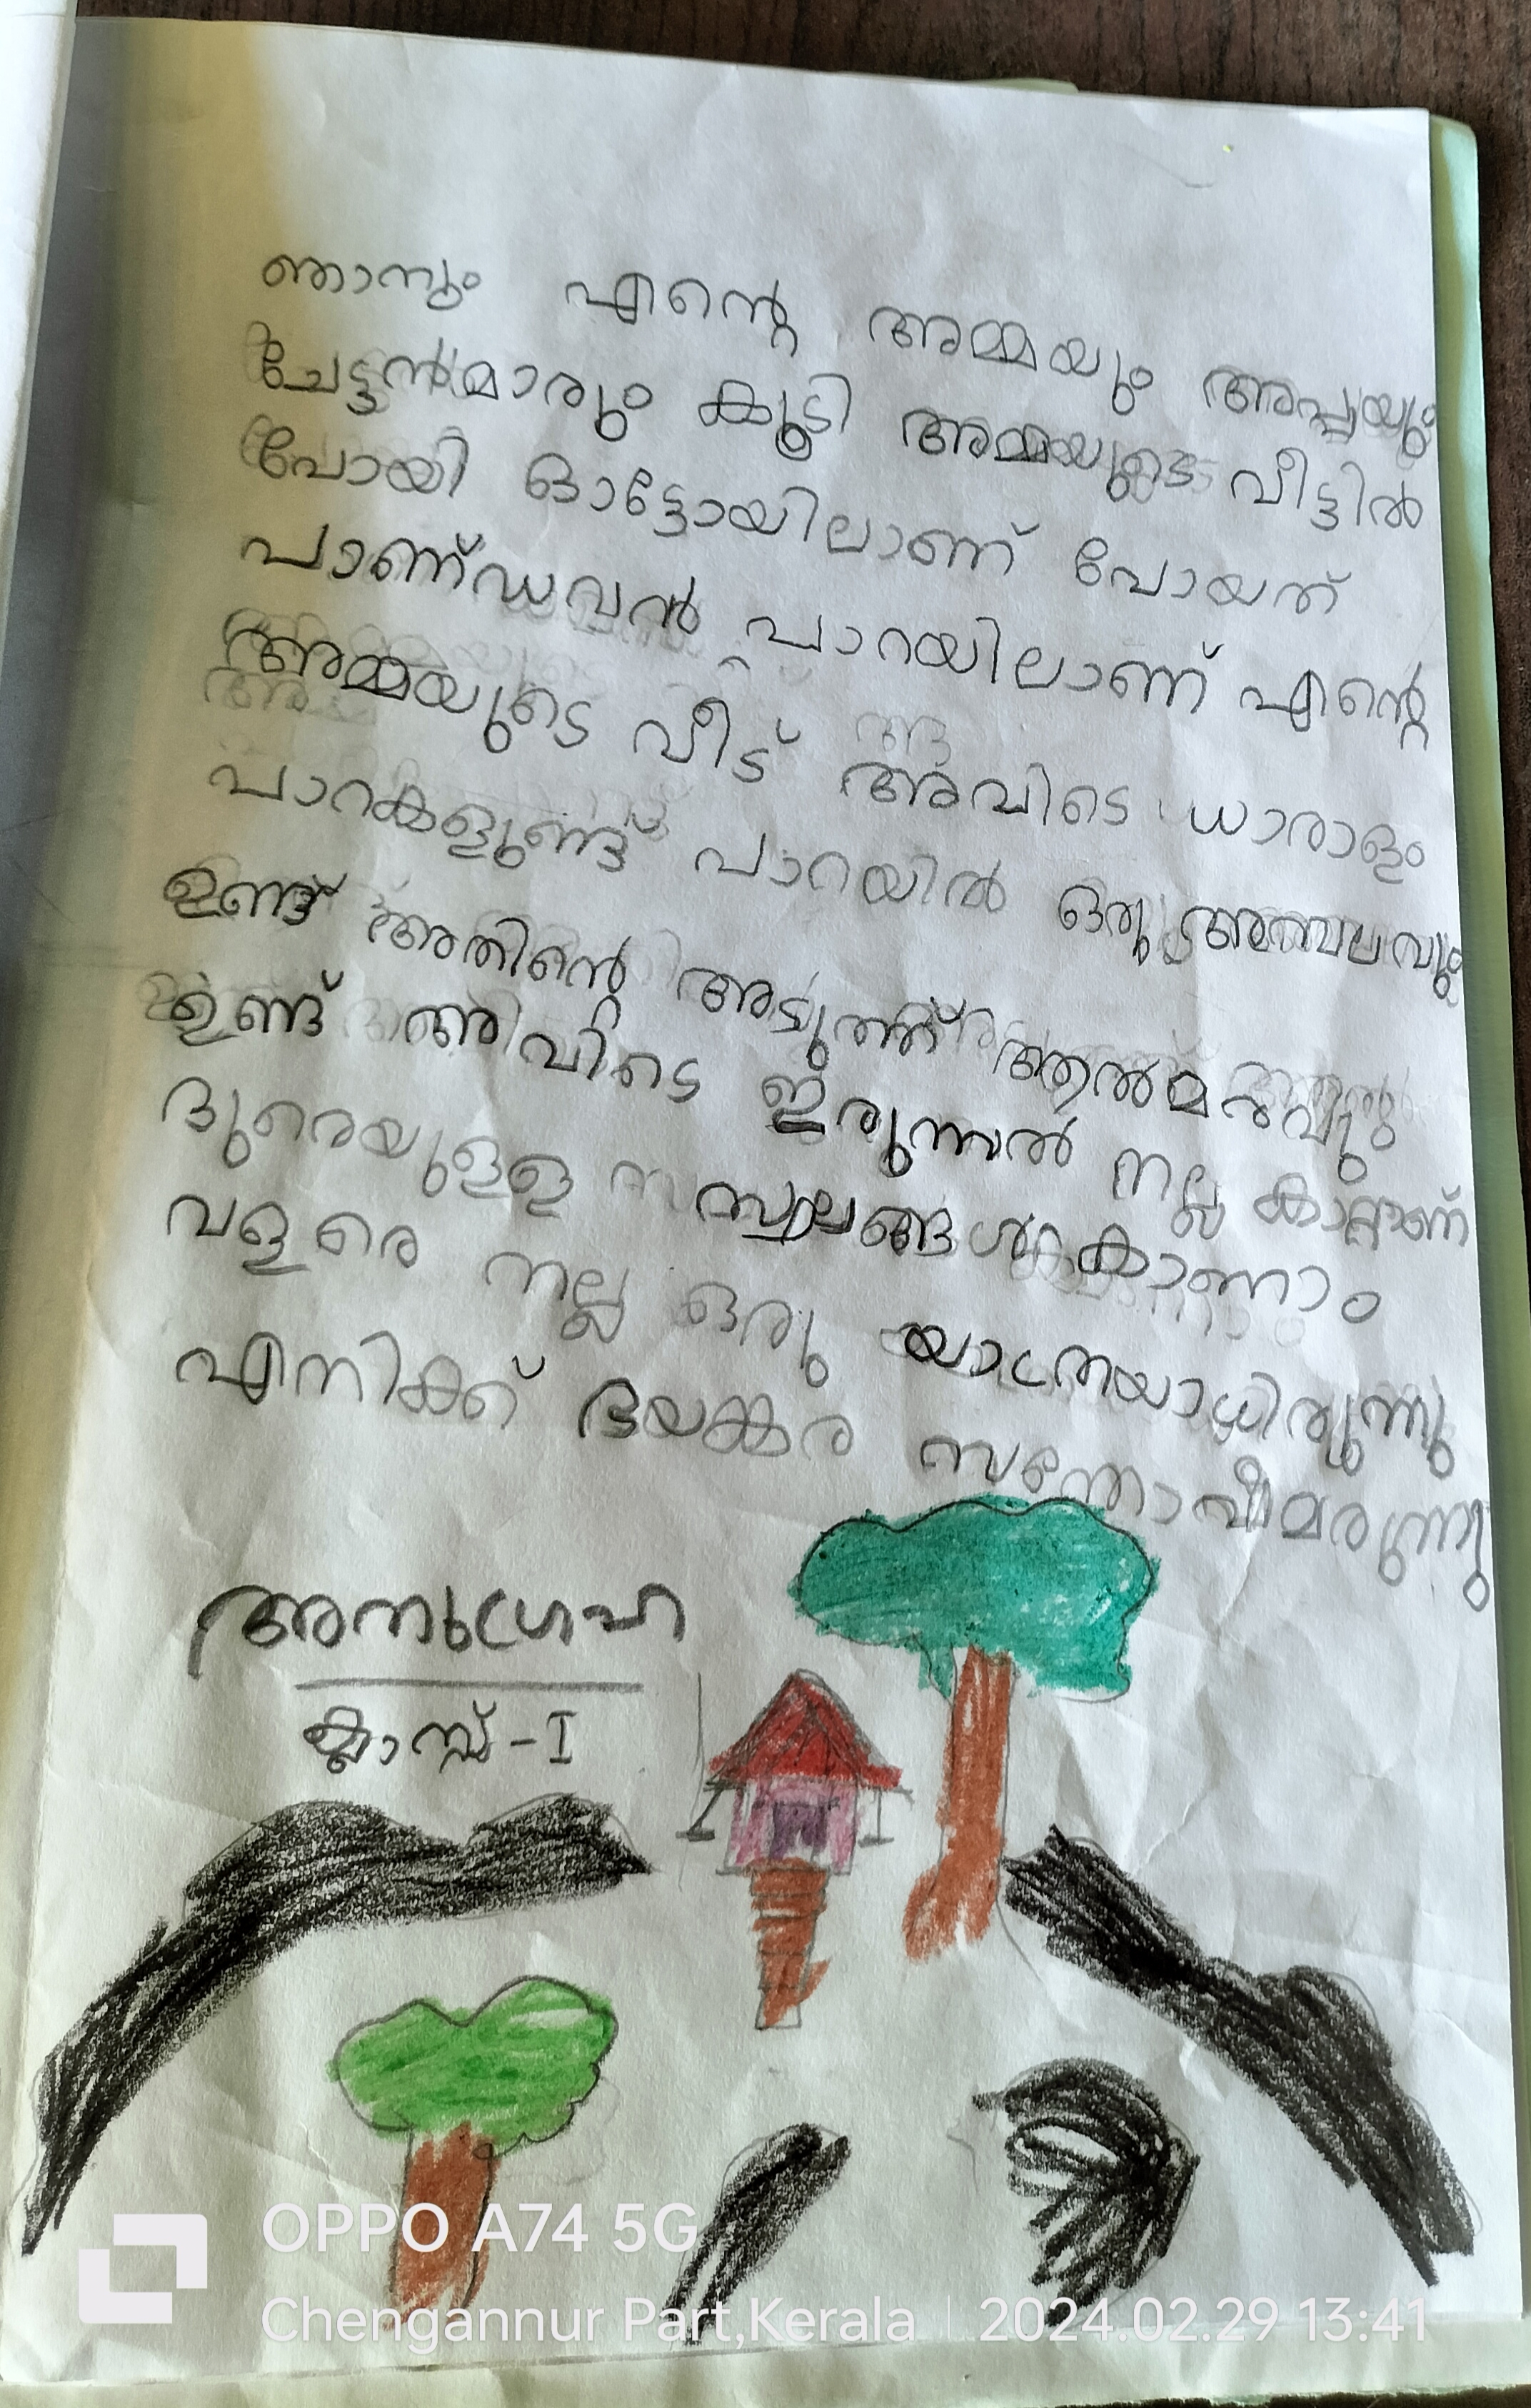 ഞാനും എന്റെ അമ്മയും അപ്പയും
ചേട്ടൻമാരും കൂടി അമ്മയുടെ വീട്ടിൽ
പോയി ഓട്ടോയിലാണ് പോയത്
പാണ്ഡവൻ പാറയിലാണ് എന്റെ
അമ്മയുടെ വീട് അവിടെ ധാരാളം
പാറകളുണ്ട് പാറയിൽ ഒരു അമ്പലവും
ഉണ്ട് അതിന്റെ അടുത്ത് ആൽമരവും
ഉണ്ട് അവിടെ ഇരുന്നാൽ നല്ല കാറ്റാണ്
ദുരെയുളള സ്ഥലങ്ങൾ കാണാം
വളരെ നല്ല ഒരു യാത്രയായിരുന്നു
എനിക്ക് ഭയങ്കര
അനുഗ്രഹ
ക്ലാസ്സ് - I
OPPO A74 5G
Chengannur Part,Kerala | 2024.02.29 13:41